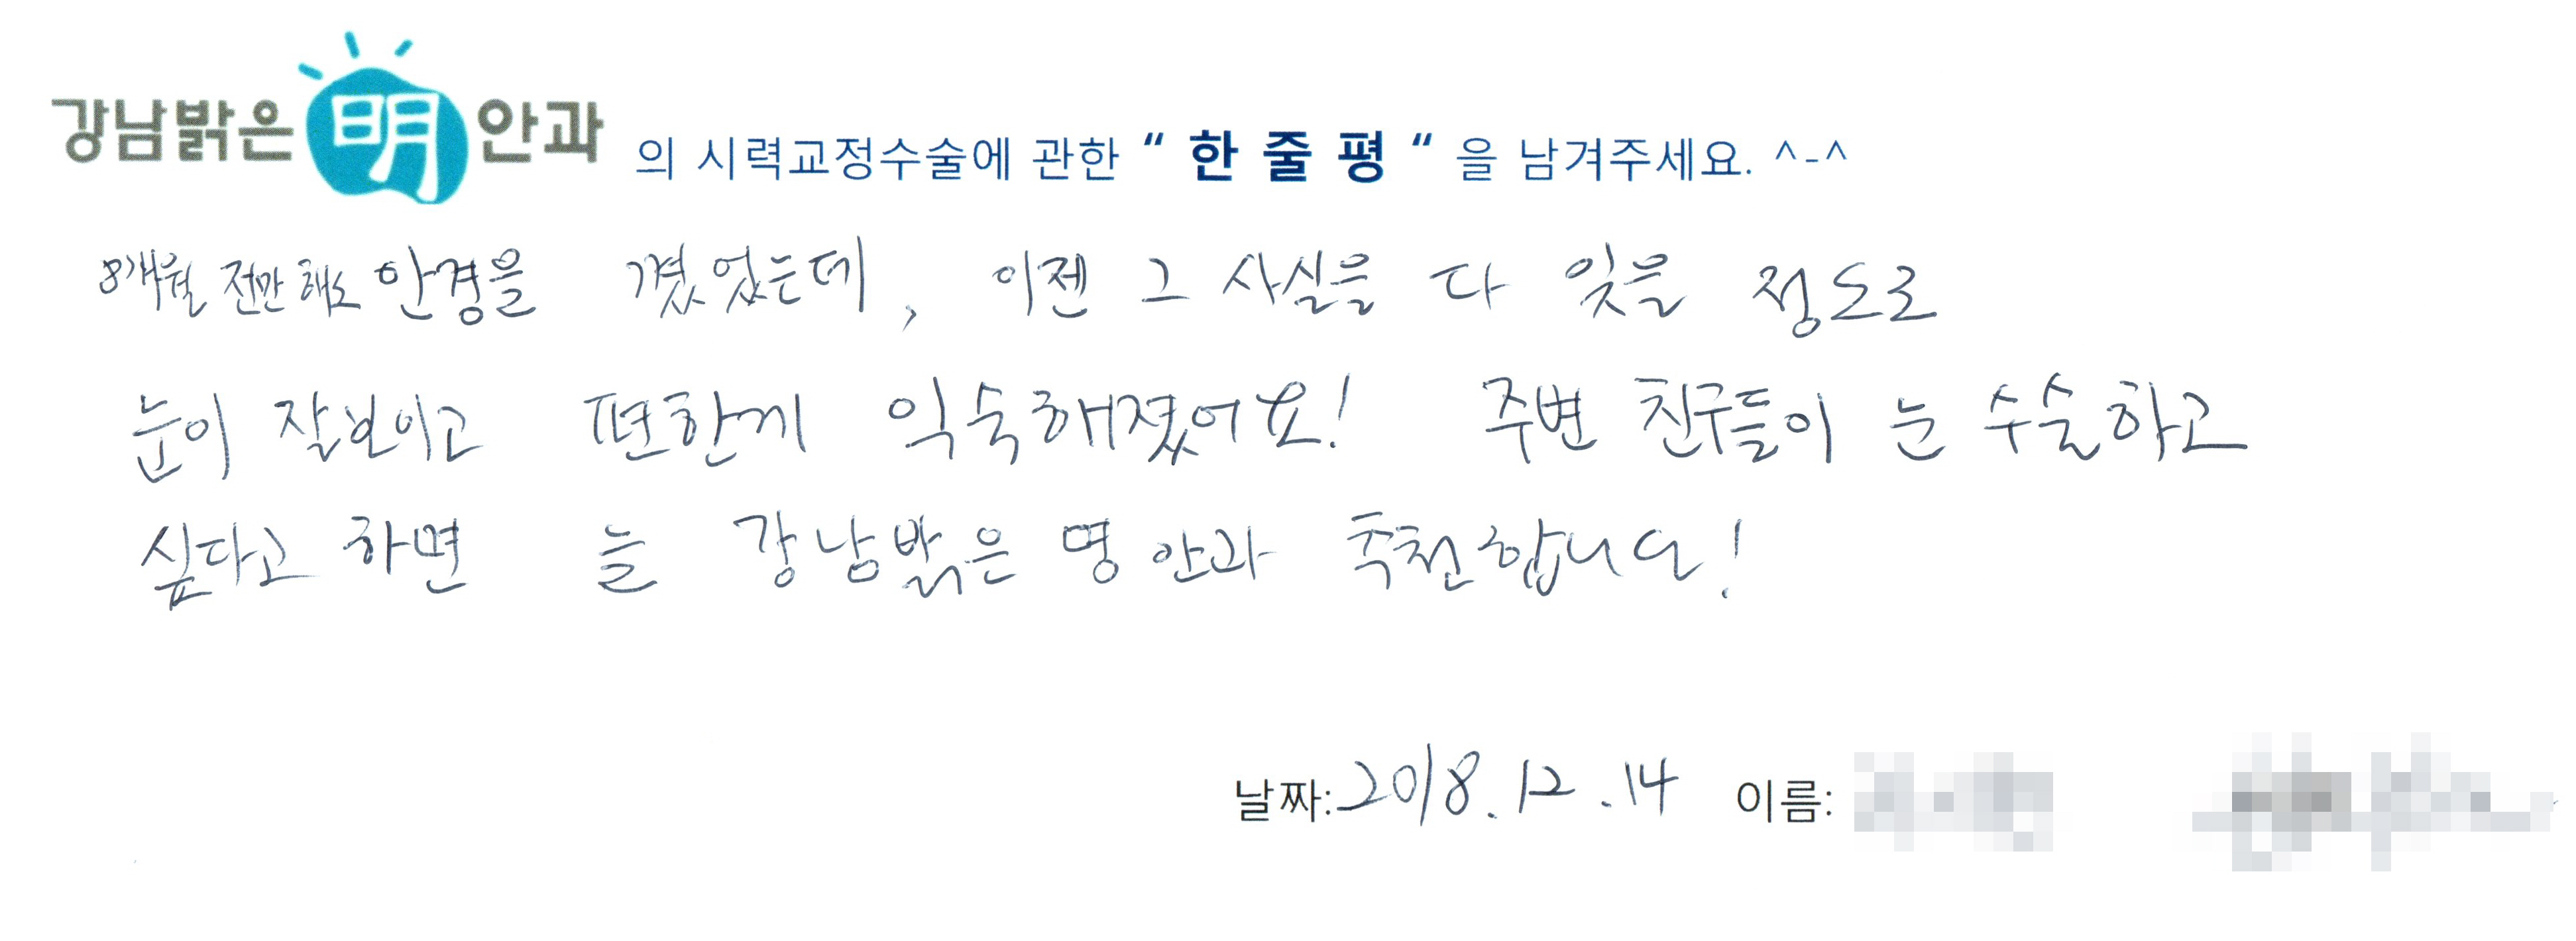 강남밝은明안과 의 시력교정수술에 관한 “ 한 줄 평 “ 을 남겨주세요. ^-^
8개월 전만 해도 안경을 꼈었는데, 이젠 그 사실을 다 잊을 정도로
눈이 잘보이고 편한게 익숙해졌어요! 주변 친구들이 눈 수술하고
싶다고 하면 늘 강남밝은 명 안과 추천합니다!
날짜: 2018.12.14 이름: